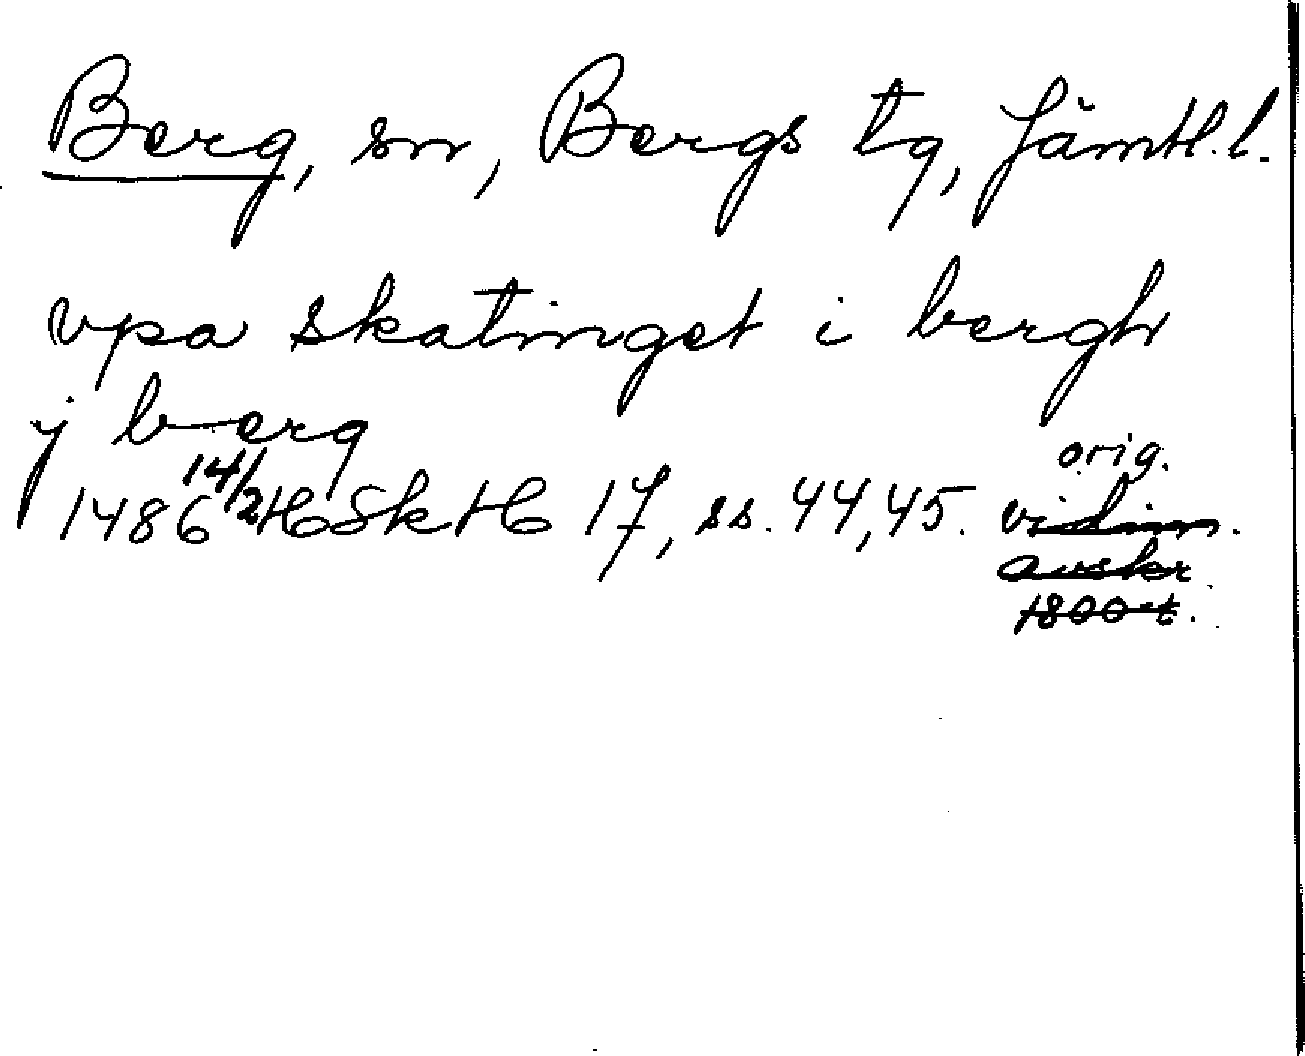 Berg, sn, Bergs tg, Jämtl. l.
vpa skatinget i bergh
j berg
1486 14/2 HSkH 17, ss. 44, 45. orig.
vidim.
avskr.
1800-t.